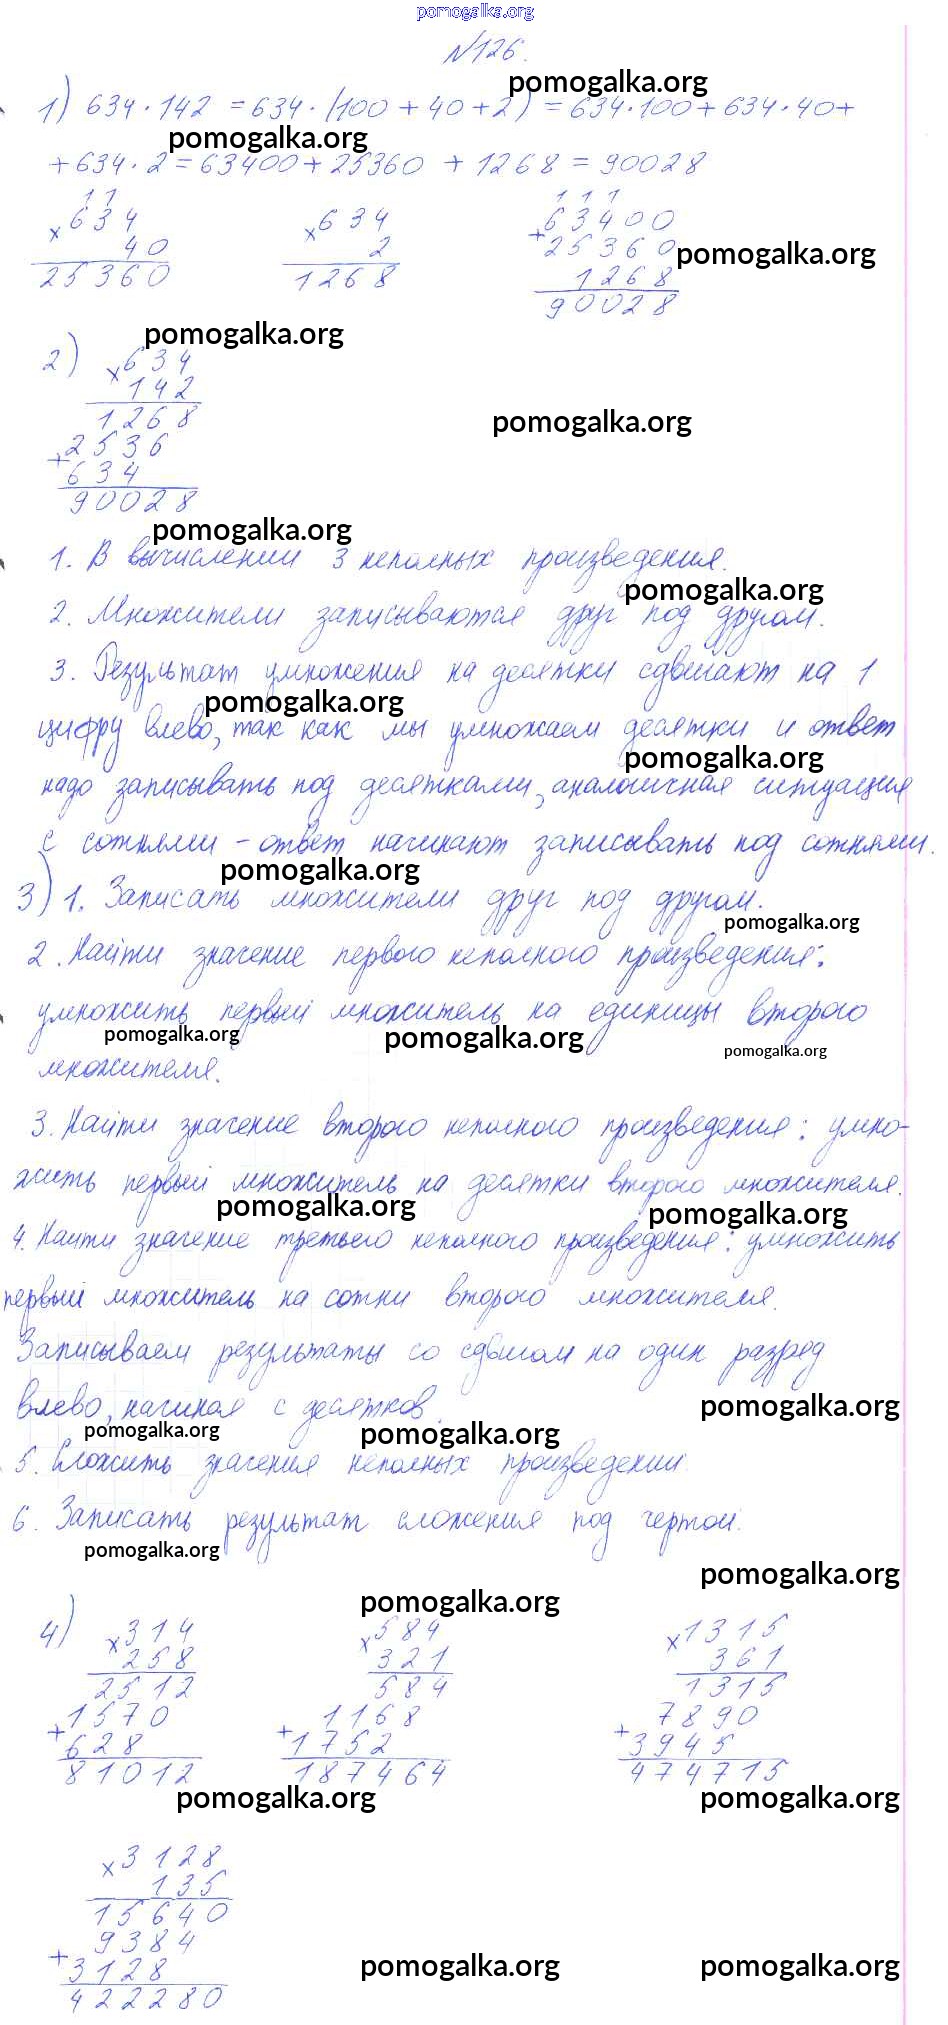 pomogalka.org
№126.
pomogalka.org
1) 634·142 = 634·(100 + 40 + 2) = 634·100 + 634·40 +
pomogalka.org
+ 634·2 = 63400 + 25360 + 1268 = 90028
1 1 1 1 1
× 634 × 634 63400
40 2 + 25360 pomogalka.org
25360 1268 1268
90028
pomogalka.org
2) × 634
142
1268 pomogalka.org
2536
+ 634
90028
pomogalka.org
1. В вычислении 3 неполных произведения.
pomogalka.org
2. Множители записываются друг под другом.
3. Результат умножения на десятки сдвигают на 1
pomogalka.org
цифру влево, так как мы умножаем десятки и ответ
pomogalka.org
надо записывать под десятками, аналогичная ситуация
с сотнями – ответ начинают записывать под сотнями.
pomogalka.org
3) 1. Записать множители друг под другом.
pomogalka.org
2. Найти значение первого неполного произведения:
умножить первый множитель на единицы второго
pomogalka.org pomogalka.org pomogalka.org
множителя.
3. Найти значение второго неполного произведения: умно-
жить первый множитель на десятки второго множителя.
pomogalka.org pomogalka.org
4. Найти значение третьего неполного произведения: умножить
первый множитель на сотни второго множителя.
Записываем результаты со сдвигом на один разряд
влево, начиная с десятков.
pomogalka.org pomogalka.org pomogalka.org
5. Сложить значения неполных произведений
6. Записать результат сложения под чертой.
pomogalka.org
pomogalka.org
pomogalka.org
4) × 314 × 584 × 1315
258 321 361
2512 584 1315
1570 1168 7890
+ 628 + 1752 + 3945
81012 187464 474715
pomogalka.org pomogalka.org
× 3128
135
15640
9384
+ 3128 pomogalka.org pomogalka.org
422280